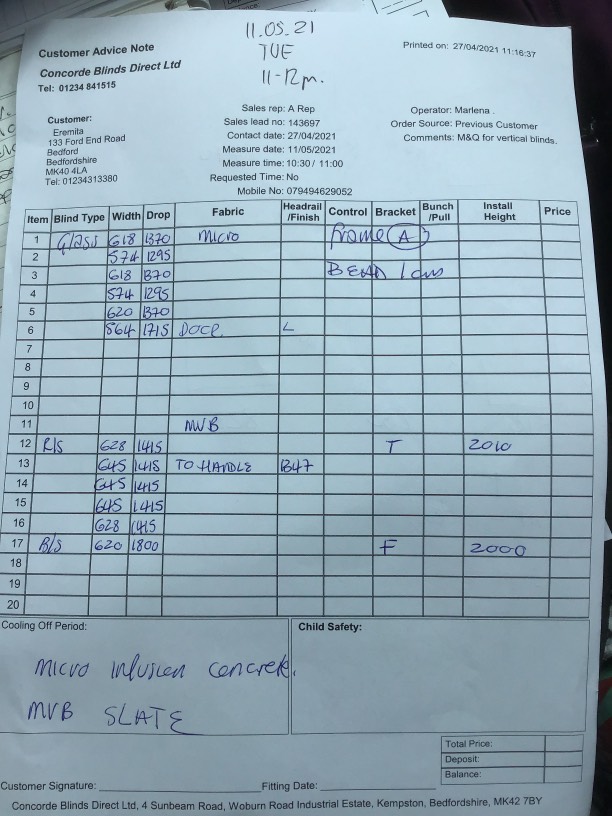 11.05.21
TUE
11-12pm.
Customer Advice Note
Printed on: 27/04/2021 11:16:37
Concorde Blinds Direct Ltd
Tel: 01234 841515
Customer:
Eremita
133 Ford End Road
Bedford
Bedfordshire
MK40 4LA
Tel: 01234313380
Sales rep: A Rep
Sales lead no: 143697
Contact date: 27/04/2021
Measure date: 11/05/2021
Measure time: 10:30/ 11:00
Requested Time: No
Mobile No: 079494629052
Operator: Marlena .
Order Source: Previous Customer
Comments: M&Q for vertical blinds.
Item Blind Type Width Drop Fabric Headrail /Finish Control Bracket Bunch /Pull Install Height Price
1 Glass 618 1370 Micro frame (A)
2 574 1295
3 618 1370 BEAD
4 574 1295
5 620 1370
6 564 1715 DOOR L
7
8
9
10
11 MVB
12 R/S 628 1415 T 2010
13 645 1415 TO HANDLE 1347
14 645 1415
15 645 1415
16 628 1415
17 B/S 620 1800 F 2000
18
19
20
Cooling Off Period:
Micro Infusion concrete.
MVB SLATE
Child Safety:
Total Price:
Deposit:
Balance:
Customer Signature: Fitting Date:
Concorde Blinds Direct Ltd, 4 Sunbeam Road, Woburn Road Industrial Estate, Kempston, Bedfordshire, MK42 7BY